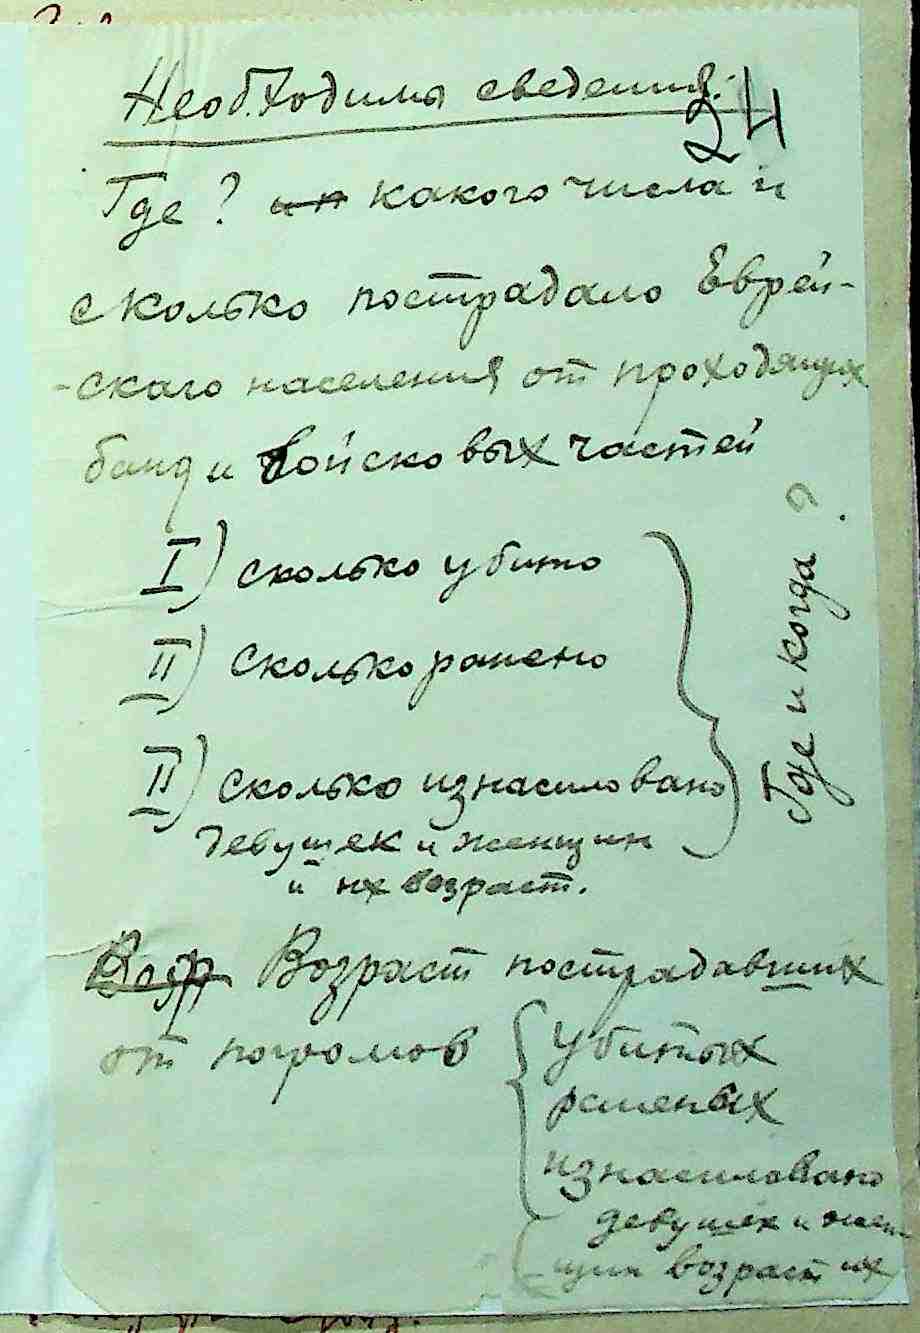 Необходимы сведения:
24
Где? ~~и п~~ какого числа и
сколько пострадало Еврей-
-скаго населения от проходящих
банд и войсковых частей
I) сколько убито
II) сколько ранено
II) сколько изнасиловано
девушек и женщин
и их возраст.
Где и когда?
~~Возр~~ Возраст пострадавших
от погромов
убитых
раненых
изнасиловано
девушек и жен-
щин возраст их